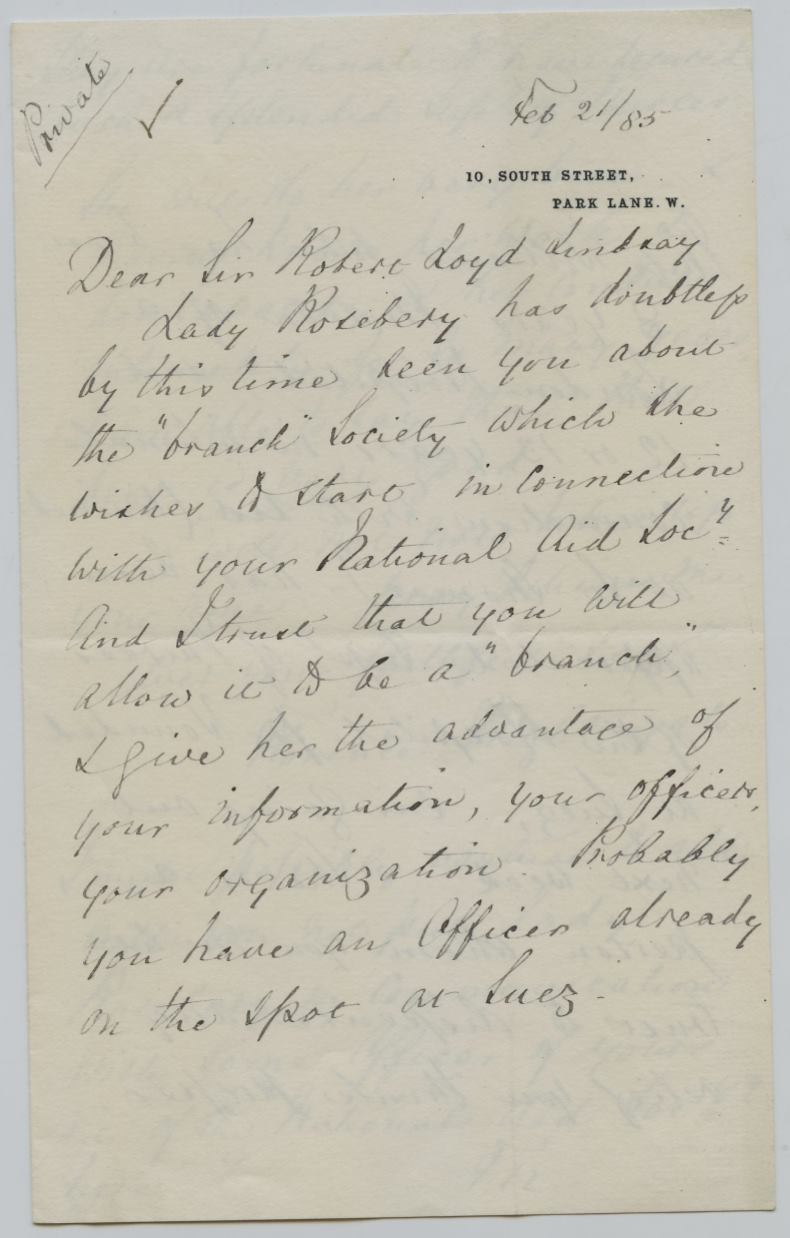 Private
Feb 21/85
10, SOUTH STREET,
PARK LANE. W.
Dear Sir Robert Loyd Lindsay
Lady Rosebery has doubtless
by this time seen you about
the "branch" Society which she
wishes to start in connection
with your National Aid Socy
And I trust that you will
allow it to be a "branch",
& give her the advantage of
your information, your officers,
your organization. Probably
you have an Officer already
on the spot at Suez -